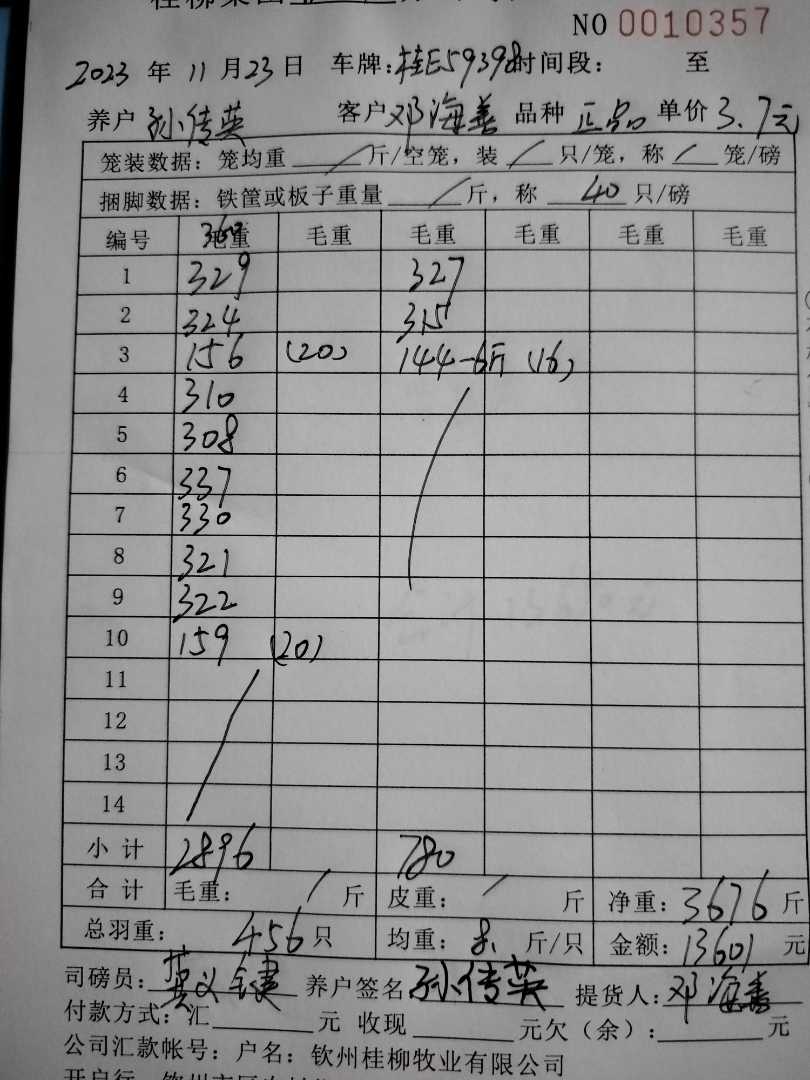 NO 0010357
2023 年 11 月 23 日 车牌: 桂E59398 时间段: 至
养户 孙传英 客户 邓海善 品种 正品 单价 3.7元
笼装数据: 笼均重 / 斤/空笼, 装 / 只/笼, 称 / 笼/磅
捆脚数据: 铁筐或板子重量 / 斤, 称 40 只/磅
编号 毛重 毛重 毛重 毛重 毛重 毛重
1 329 327
2 324 315
3 156 (20) 144-6斤 (16)
4 310
5 308
6 337
7 330
8 321
9 322
10 159 (20)
11
12
13
14
小计 2896 780
合计 毛重: / 斤 皮重: / 斤 净重: 3676 斤
总羽重: 456 只 均重: 8. 斤/只 金额: 13601 元
司磅员: 养户签名 孙传英 提货人: 邓海善
付款方式: 汇 元 收现 元欠(余): 元
公司汇款帐号: 户名: 钦州桂柳牧业有限公司